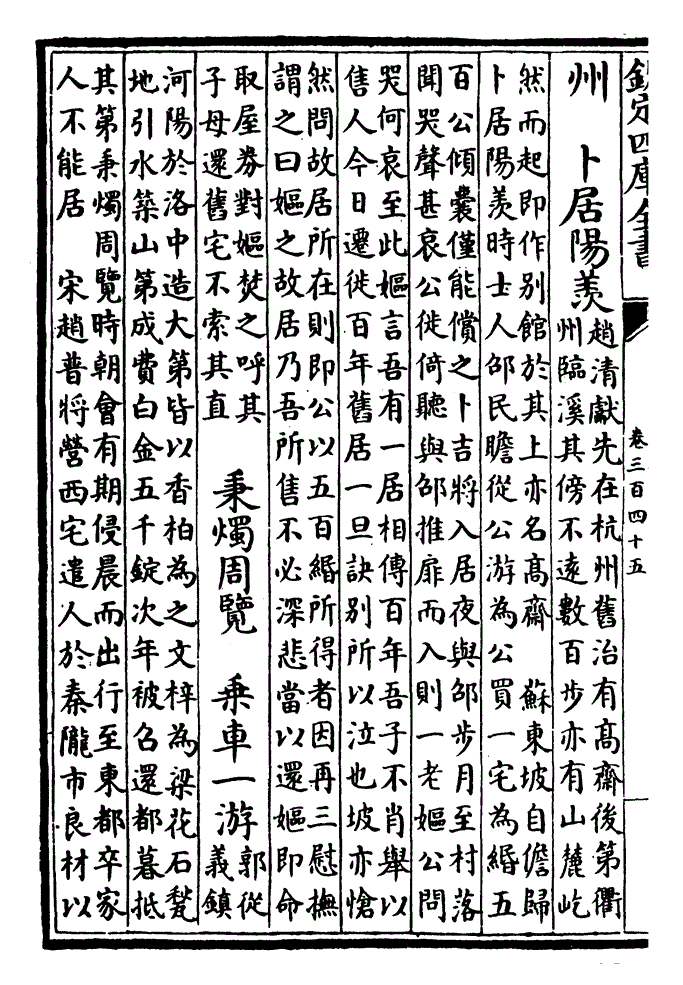 欽定四庫全書
卷三百四十五
州　卜居陽羨
趙清獻先在杭州舊治有髙齋後第衢
州臨溪其傍不遠數百步亦有山麓屹
然而起即作别館於其上亦名髙齋　蘇東坡自儋歸
卜居陽羨時士人邵民瞻從公游為公買一宅為緡五
百公傾囊僅能償之卜吉將入居夜與邵步月至村落
聞哭聲甚哀公徙倚聽與邵推扉而入則一老嫗公問
哭何哀至此嫗言吾有一居相傳百年吾子不肖舉以
售人今日遷徙百年舊居一旦訣别所以泣也坡亦愴
然問故居所在則即公以五百緡所得者因再三慰撫
謂之曰嫗之故居乃吾所售不必深悲當以還嫗即命
取屋券對嫗焚之呼其
子母還舊宅不索其直
秉燭周覽　乗車一游
郭從
義鎮
河陽於洛中造大第皆以香柏為之文梓為梁花石甃
地引水築山第成費白金五千錠次年被召還都暮抵
其第秉燭周覽時朝會有期侵晨而出行至東都卒家
人不能居　宋趙普將營西宅遣人於秦隴市良材以